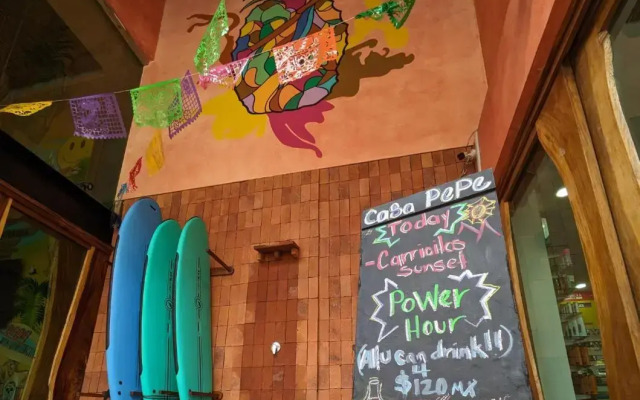 Casa Pepe
Today
-Carricitos
sunset
Power
Hour
(All u can drink!!)
4
$120 MX